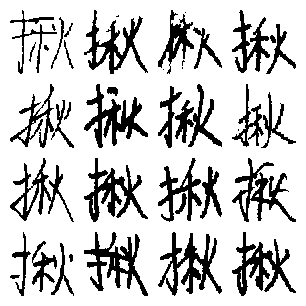 揪揪揪揪
揪揪揪揪
揪揪揪揪
揪揪揪揪